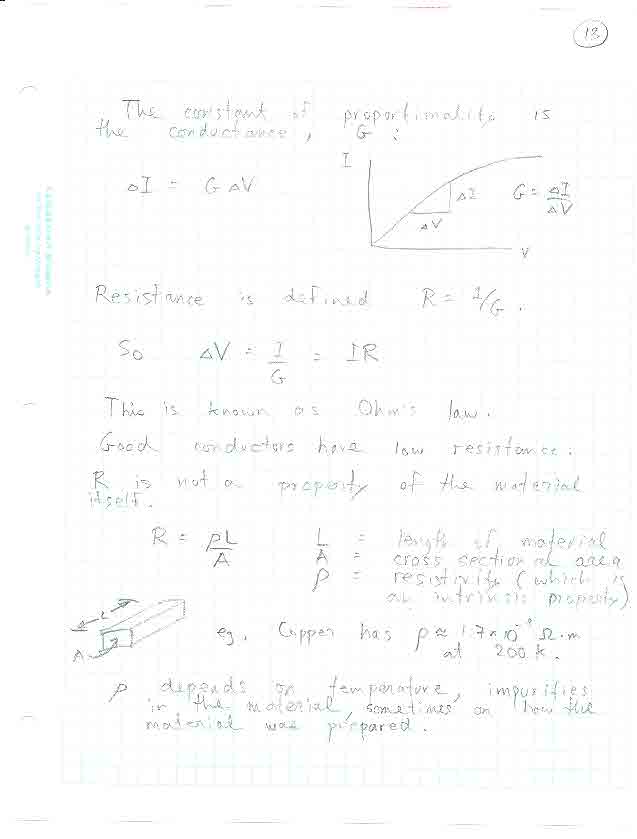 13
The constant of proportionality is
the conductance, G :
ΔI = G ΔV
I
ΔI
ΔV
V
G = ΔI/ΔV
Resistance is defined R = 1/G .
So ΔV = I/G = IR
This is known as Ohm's law.
Good conductors have low resistance.
R is not a property of the material
itself.
R = ρL/A
L = length of material
A = cross sectional area
ρ = resistivity (which is
an intrinsic property)
L
A
eg. Copper has ρ ≈ 1.7 × 10 Ω·m
at 200 k.
ρ depends on temperature, impurities
in the material, sometimes on how the
material was prepared.